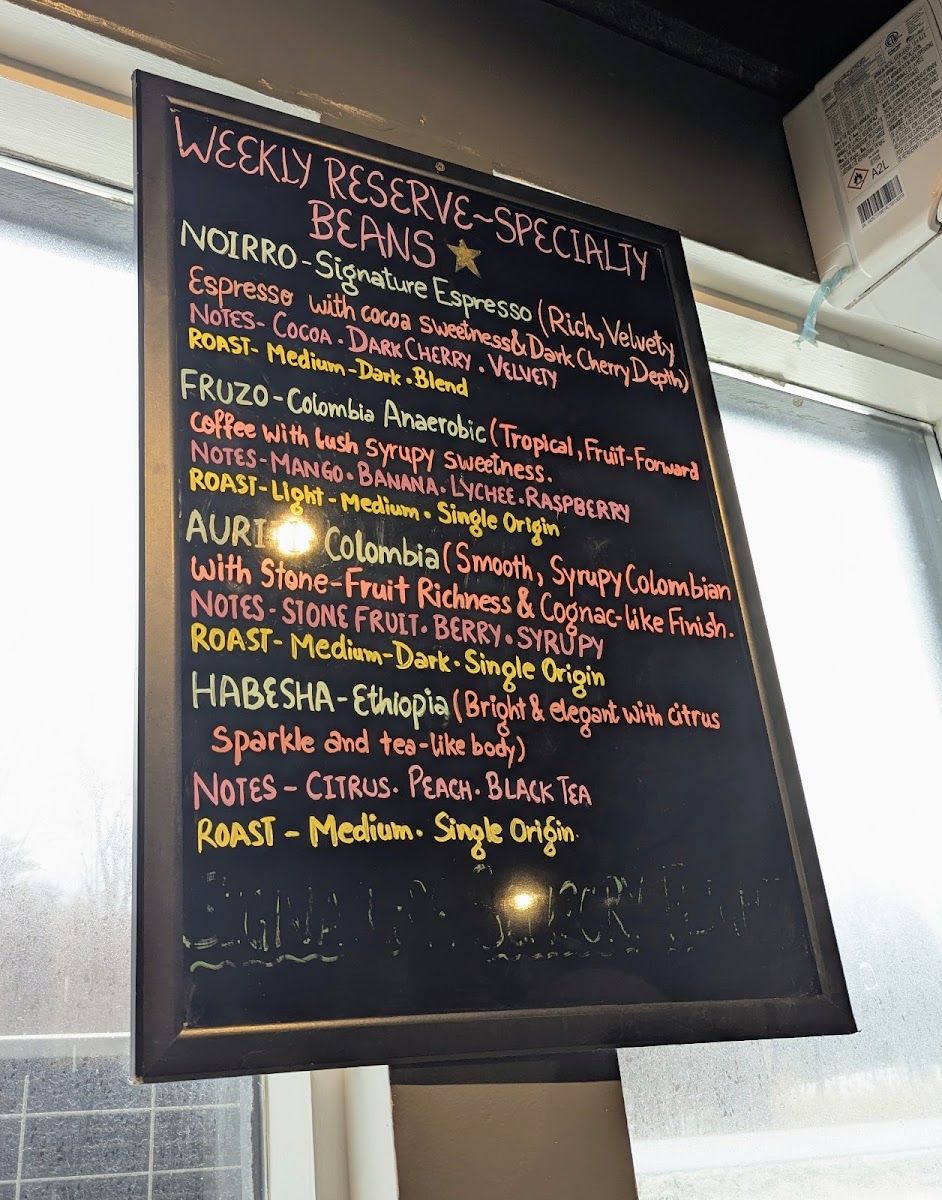 WEEKLY RESERVE-SPECIALTY
BEANS
NOIRRO - Signature Espresso (Rich, Velvety
Espresso with cocoa sweetness & Dark Cherry Depth)
NOTES- COCOA · DARK CHERRY · VELVETY
ROAST- Medium-Dark · Blend
FRUZO - Colombia Anaerobic (Tropical, Fruit-Forward
Coffee with lush syrupy sweetness.
NOTES-MANGO · BANANA · LYCHEE · RASPBERRY
ROAST-Light-Medium · Single Origin
Colombia (Smooth, Syrupy Colombian
with Stone-Fruit Richness & Cognac-like Finish.
NOTES - STONE FRUIT · BERRY · SYRUPY
ROAST- Medium-Dark · Single Origin
HABESHA - Ethiopia (Bright & elegant with citrus
Sparkle and tea-like body)
NOTES - CITRUS · PEACH · BLACK TEA
ROAST - Medium · Single Origin
A2L